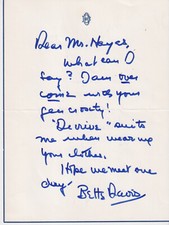 Dear Mr. Hayes,
What can I
say? I am over
come with your
generosity!
"Devine" suits
me when wearing
your clothes.
Hope we meet one
day.
Bette Davis